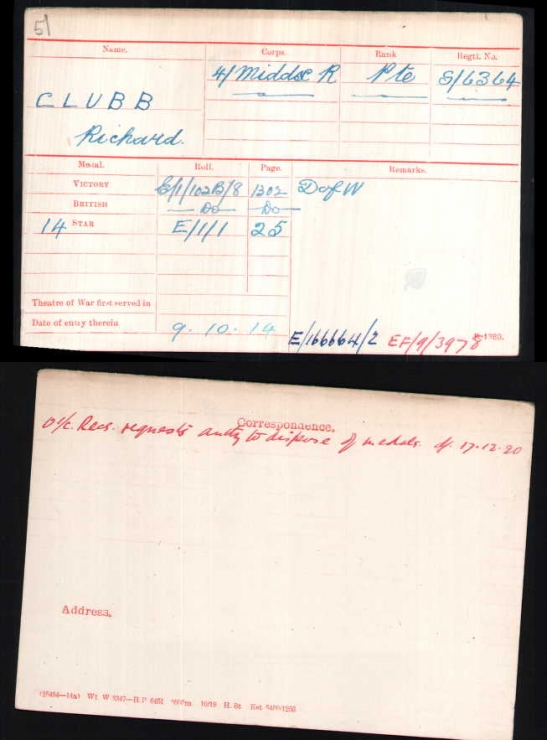 51
Name. Corps. Rank Regtl. No.
4/ Middx R Pte S/6364
CLUBB
Richard.
Medal. Roll. Page. Remarks.
VICTORY E/1/102B/8 1302 D of W
BRITISH Do Do
14 STAR E/1/1 25
Theatre of War first served in
Date of entry therein 9.10.14
E/166664/2 EF/9/3978
K-1380.
Correspondence.
O i/c. Recs. requests auty to dispose of medals. d. 17-12-20
Address.